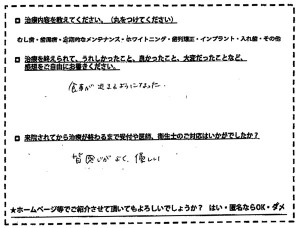 □ 治療内容を教えてください。(丸をつけてください)
むし歯・歯周病・定期的なメンテナンス・ホワイトニング・歯列矯正・インプラント・入れ歯・その他
□ 治療を終えられて、うれしかったこと、良かったこと、大変だったことなど、
感想をご自由にお書きください。
食事が
□ 来院されてから治療が終わるまで受付や医師、衛生士のご対応はいかがでしたか?
皆 感じがよく、優しい
★ホームページ等でご紹介させて頂いてもよろしいでしょうか? はい・匿名ならOK・ダメ